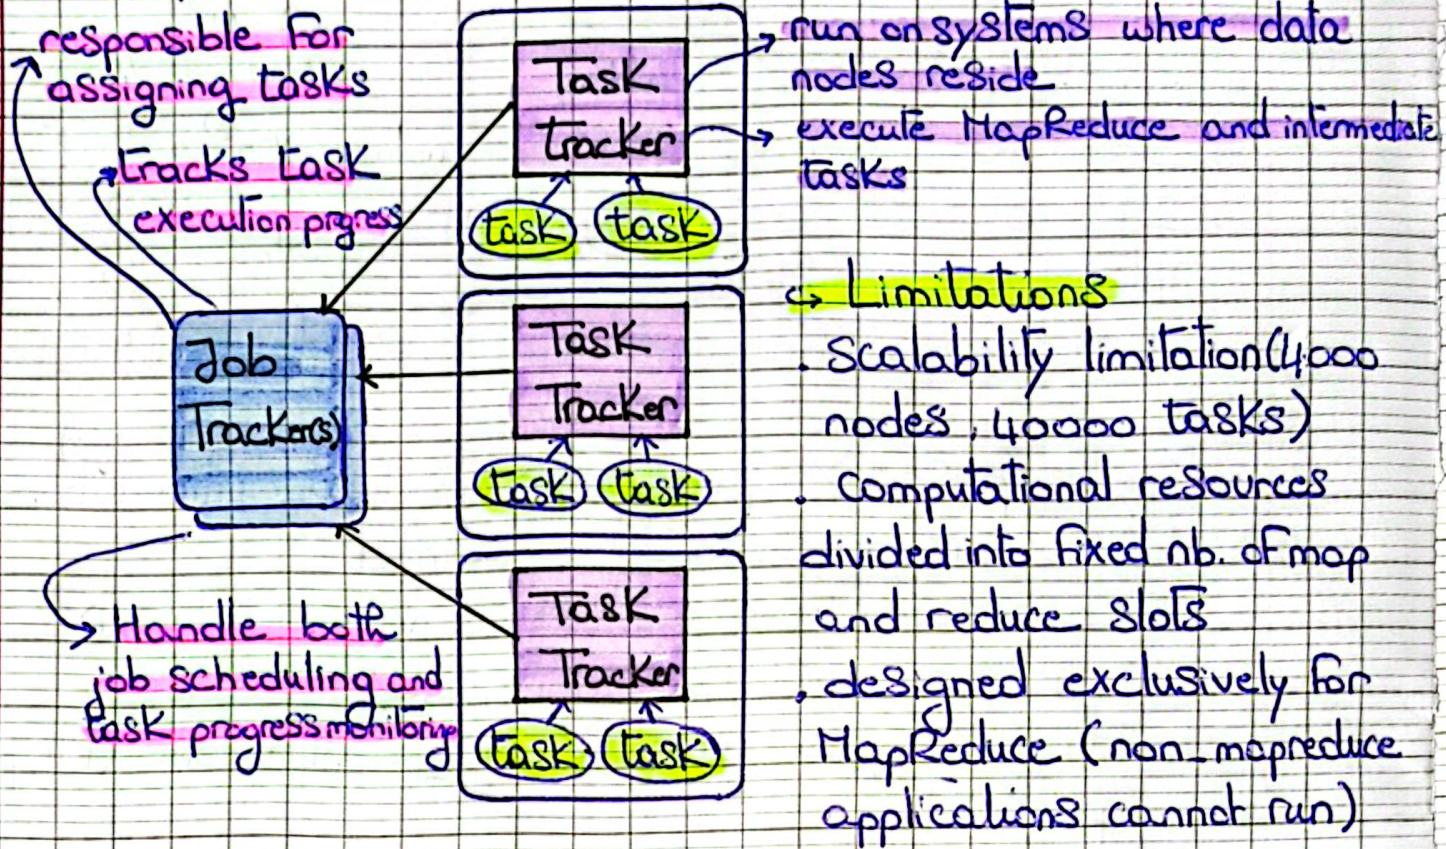 responsible for
assigning tasks
tracks task
execution progress
Job
Tracker(s)
Handle both
job scheduling and
task progress monitoring
Task
tracker
task task
Task
Tracker
task task
Task
Tracker
task task
run on systems where data
nodes reside
execute MapReduce and intermediate
tasks
↪ Limitations
. Scalability limitation (4000
nodes, 40000 tasks)
. computational resources
divided into fixed nb. of map
and reduce slots
. designed exclusively for
MapReduce (non_mapreduce
applications cannot run)